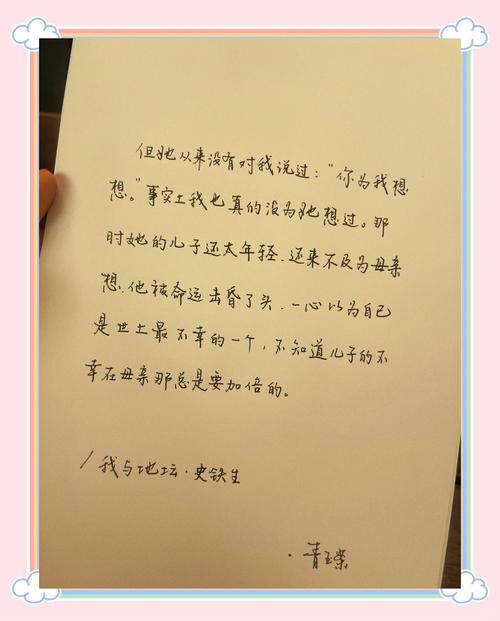 但她从来没有对我说过："你为我想
想。"事实上我也真的没为她想过。那
时她的儿子还太年轻，还来不及为母亲
想，他被命运击昏了头，一心以为自己
是世上最不幸的一个，不知道儿子的不
幸在母亲那总是要加倍的。
/我与地坛·史铁生